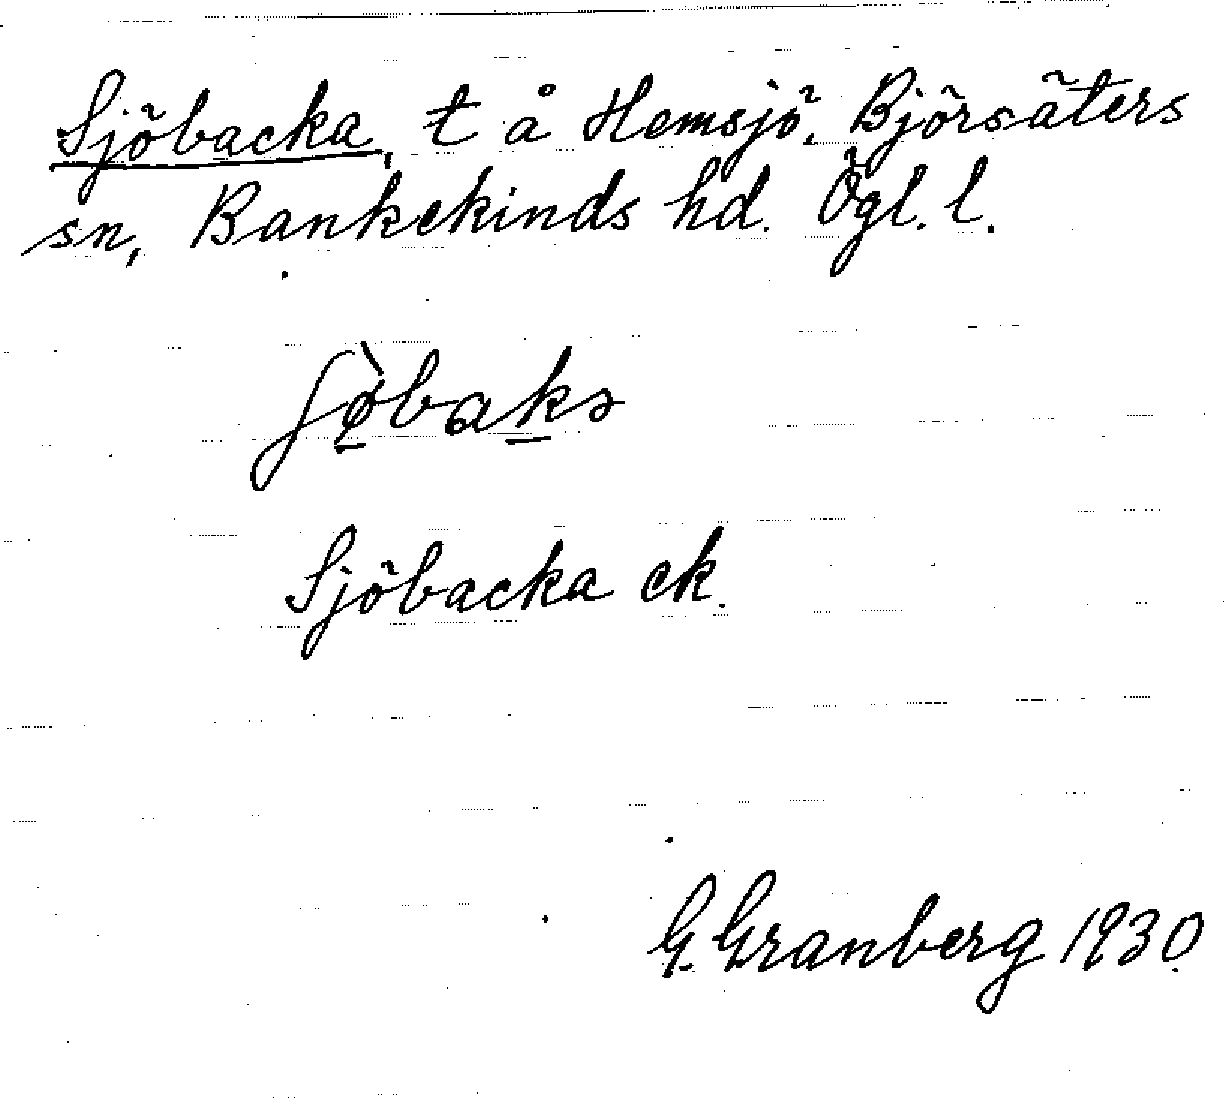 Sjöbacka, t å Hemsjö, Björsäters
sn, Bankekinds hd. Ögl. l.
Sjöbacka ek.
G. Granberg 1930.